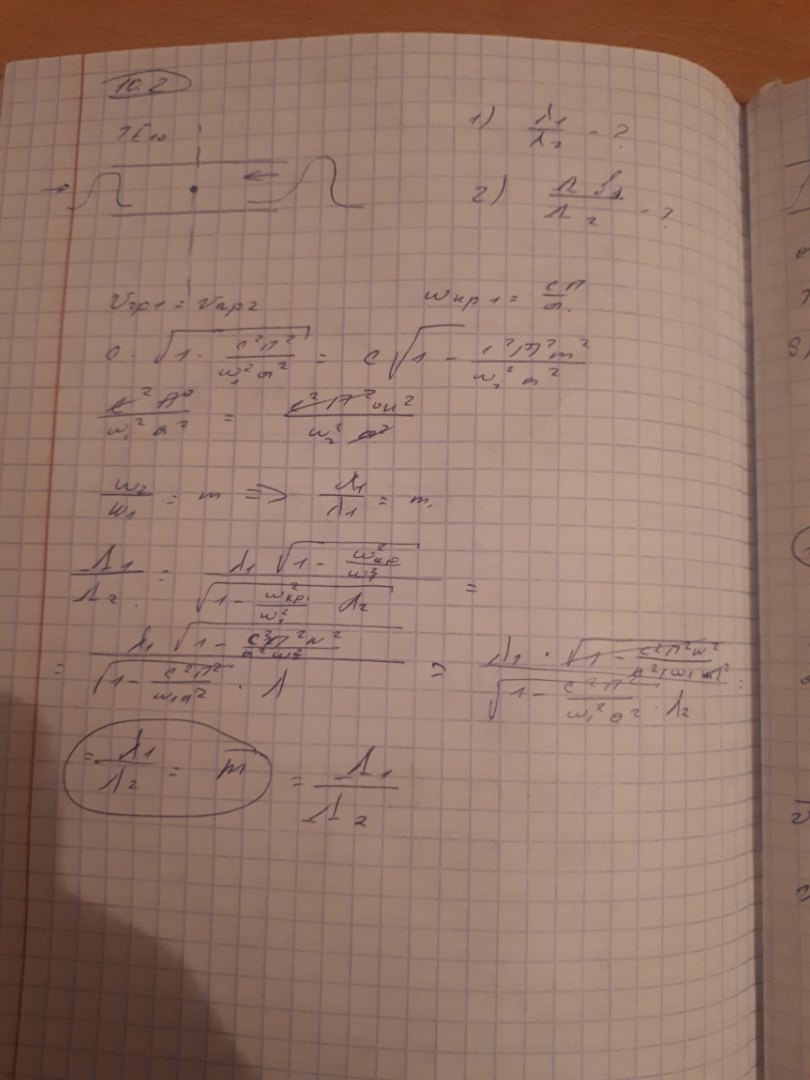 10.2
TE₁₀
1) λ₁/λ₂ - ?
2) Λ₁/Λ₂ - ?
vгр1 = vгр2 ωкр1 = cπ/a
c · √(1 - c²π²/(ω₁²a²)) = c√(1 - c²π²m²/(ω₂²a²))
c²π²/(ω₁²a²) = c²π²m²/(ω₂²a²)
ω₂/ω₁ = m => λ₁/λ₁ = m.
Λ₁/Λ₂ = λ₁ √(1 - ω²кр/ω₂²) / (√(1 - ω²кр/ω₁²) λ₂) =
= λ₁ √(1 - c²π²m²/(a²ω₂²)) / (√(1 - c²π²/(ω₁a²)) · λ) = λ₁ · √(1 - c²π²m²/(a²(ω₁m)²)) / (√(1 - c²π²/(ω₁²a²)) · λ₂) =
= λ₁/λ₂ = m = Λ₁/Λ₂